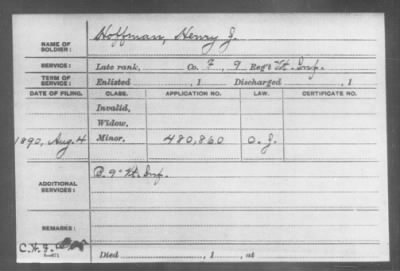 NAME OF SOLDIER: Hoffman, Henry J.
SERVICE: Late rank, Co. F, 9 Reg't Vt. Inf.
TERM OF SERVICE: Enlisted , 1 Discharged , 1
DATE OF FILING. CLASS. APPLICATION NO. LAW. CERTIFICATE NO.
Invalid,
Widow,
1890, Aug. 4 Minor, 480,860 O. J.
ADDITIONAL SERVICES: B. 9" Vt. Inf.
REMARKS:
C.H.F.
Died , 1 , at